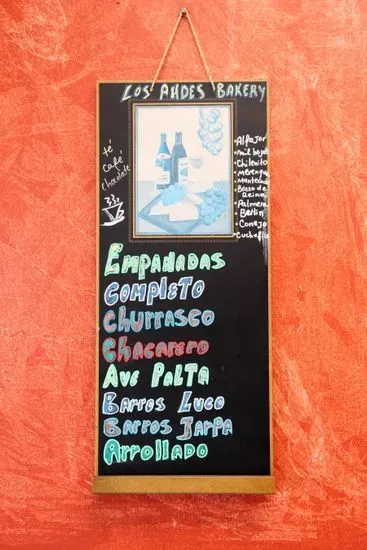 LOS ANDES BAKERY
té
café
chocolate
Alfajor
mil hojas
Chilenito
Merengue
Mantecado
Brazo de
Reina
Palmera
Berlin
Conejo
Cuchufli
EMPANADAS
COMPLETO
CHURRASCO
CHACARERO
AVE PALTA
BARROS LUCO
BARROS JARPA
ARROLLADO